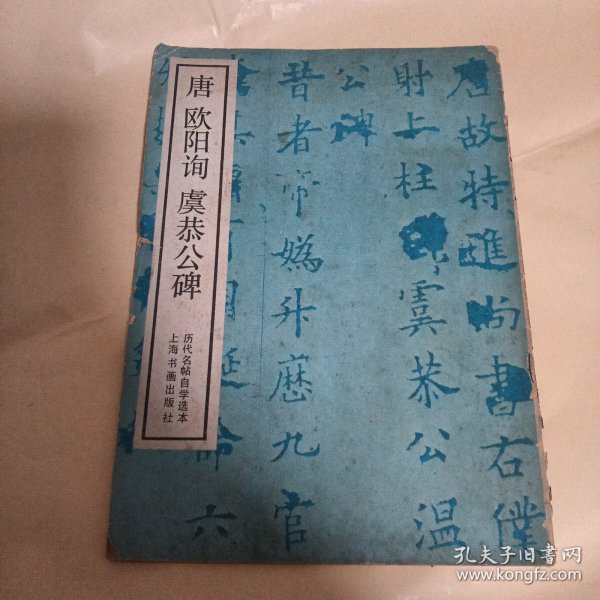 唐 欧阳询 虞恭公碑
历代名帖自学选本
上海书画出版社
唐故特進尚書右僕
射上柱 虞恭公温
公碑
昔者帝媯升歷九官
命六
孔夫子旧书网
www.kongfz.com